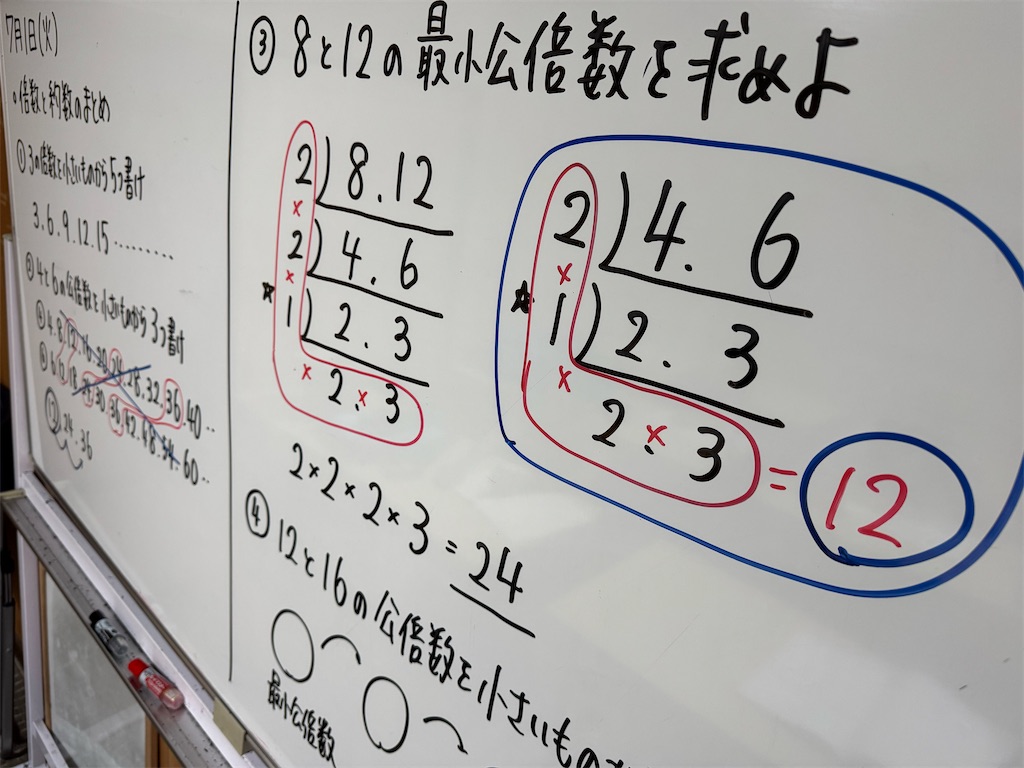 7月1日(火)
・倍数と約数のまとめ
① 3の倍数を小さいものから5つ書け
3.6.9.12.15.........
② 4と6の公倍数を小さいものから3つ書け
④ 4.8.12.16.20.24.28.32.36.40..
⑥ 6.12.18.24.30.36.42.48.54.60..
12.24.36
③ 8と12の最小公倍数を求めよ
2)8.12
×
2)4.6
×
★ 1)2.3
× 2.×3
2×2×2×3=24
2)4.6
×
★ 1)2.3
×
2.×3=12
④ 12と16の公倍数を小さいもの
最小公倍数